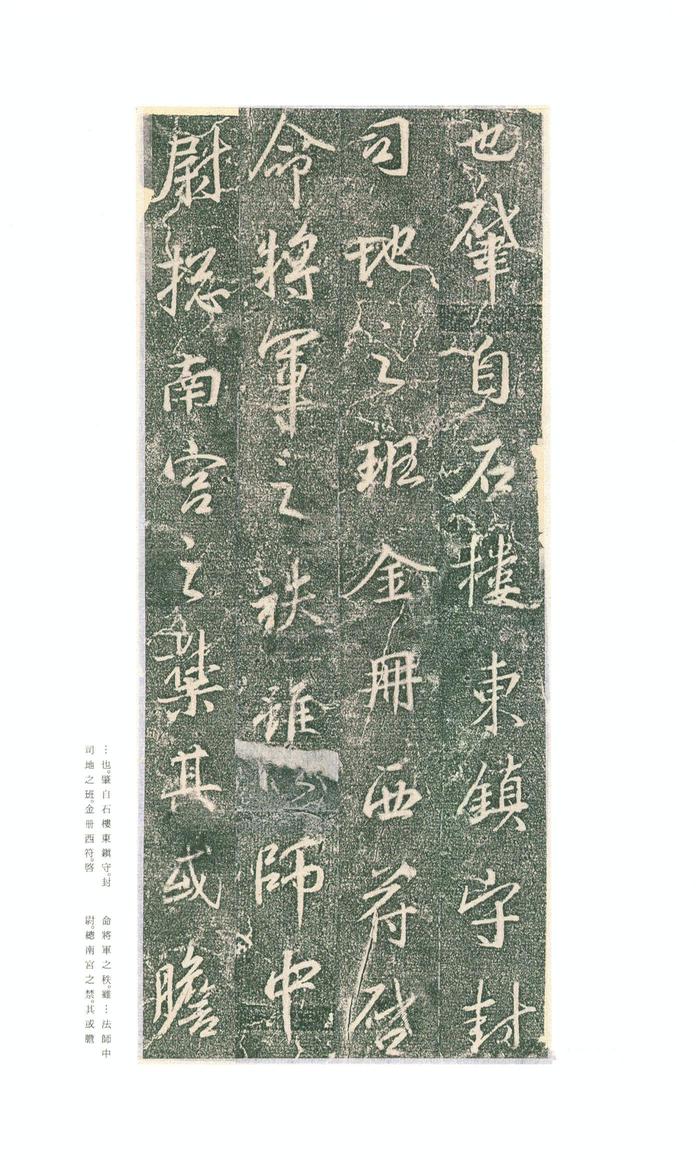 也肇自石樓東鎮守封
司地之班金冊西符啓
命將軍之秩雖師中
尉揔南宮之禁其或瞻
…也。肇自石樓東鎭守。封
司地之班。金册西符。啓
命將軍之秩。雖…法師中
尉。總南宮之禁。其或膽